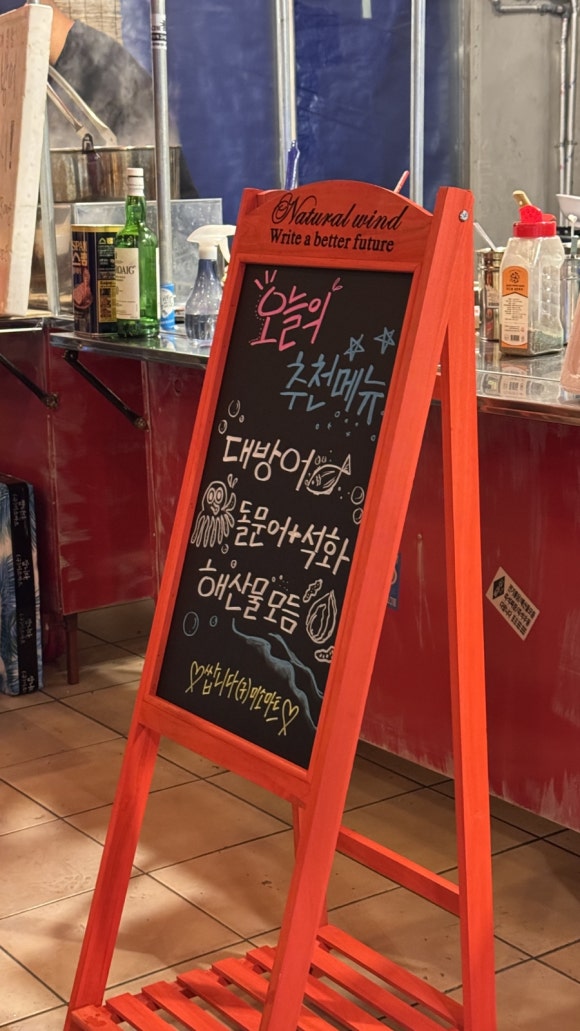 Natural wind
Write a better future
오늘의
추천메뉴
대방어
돌문어+석화
해산물모듬
♡쌉니다(주)미소마트♡